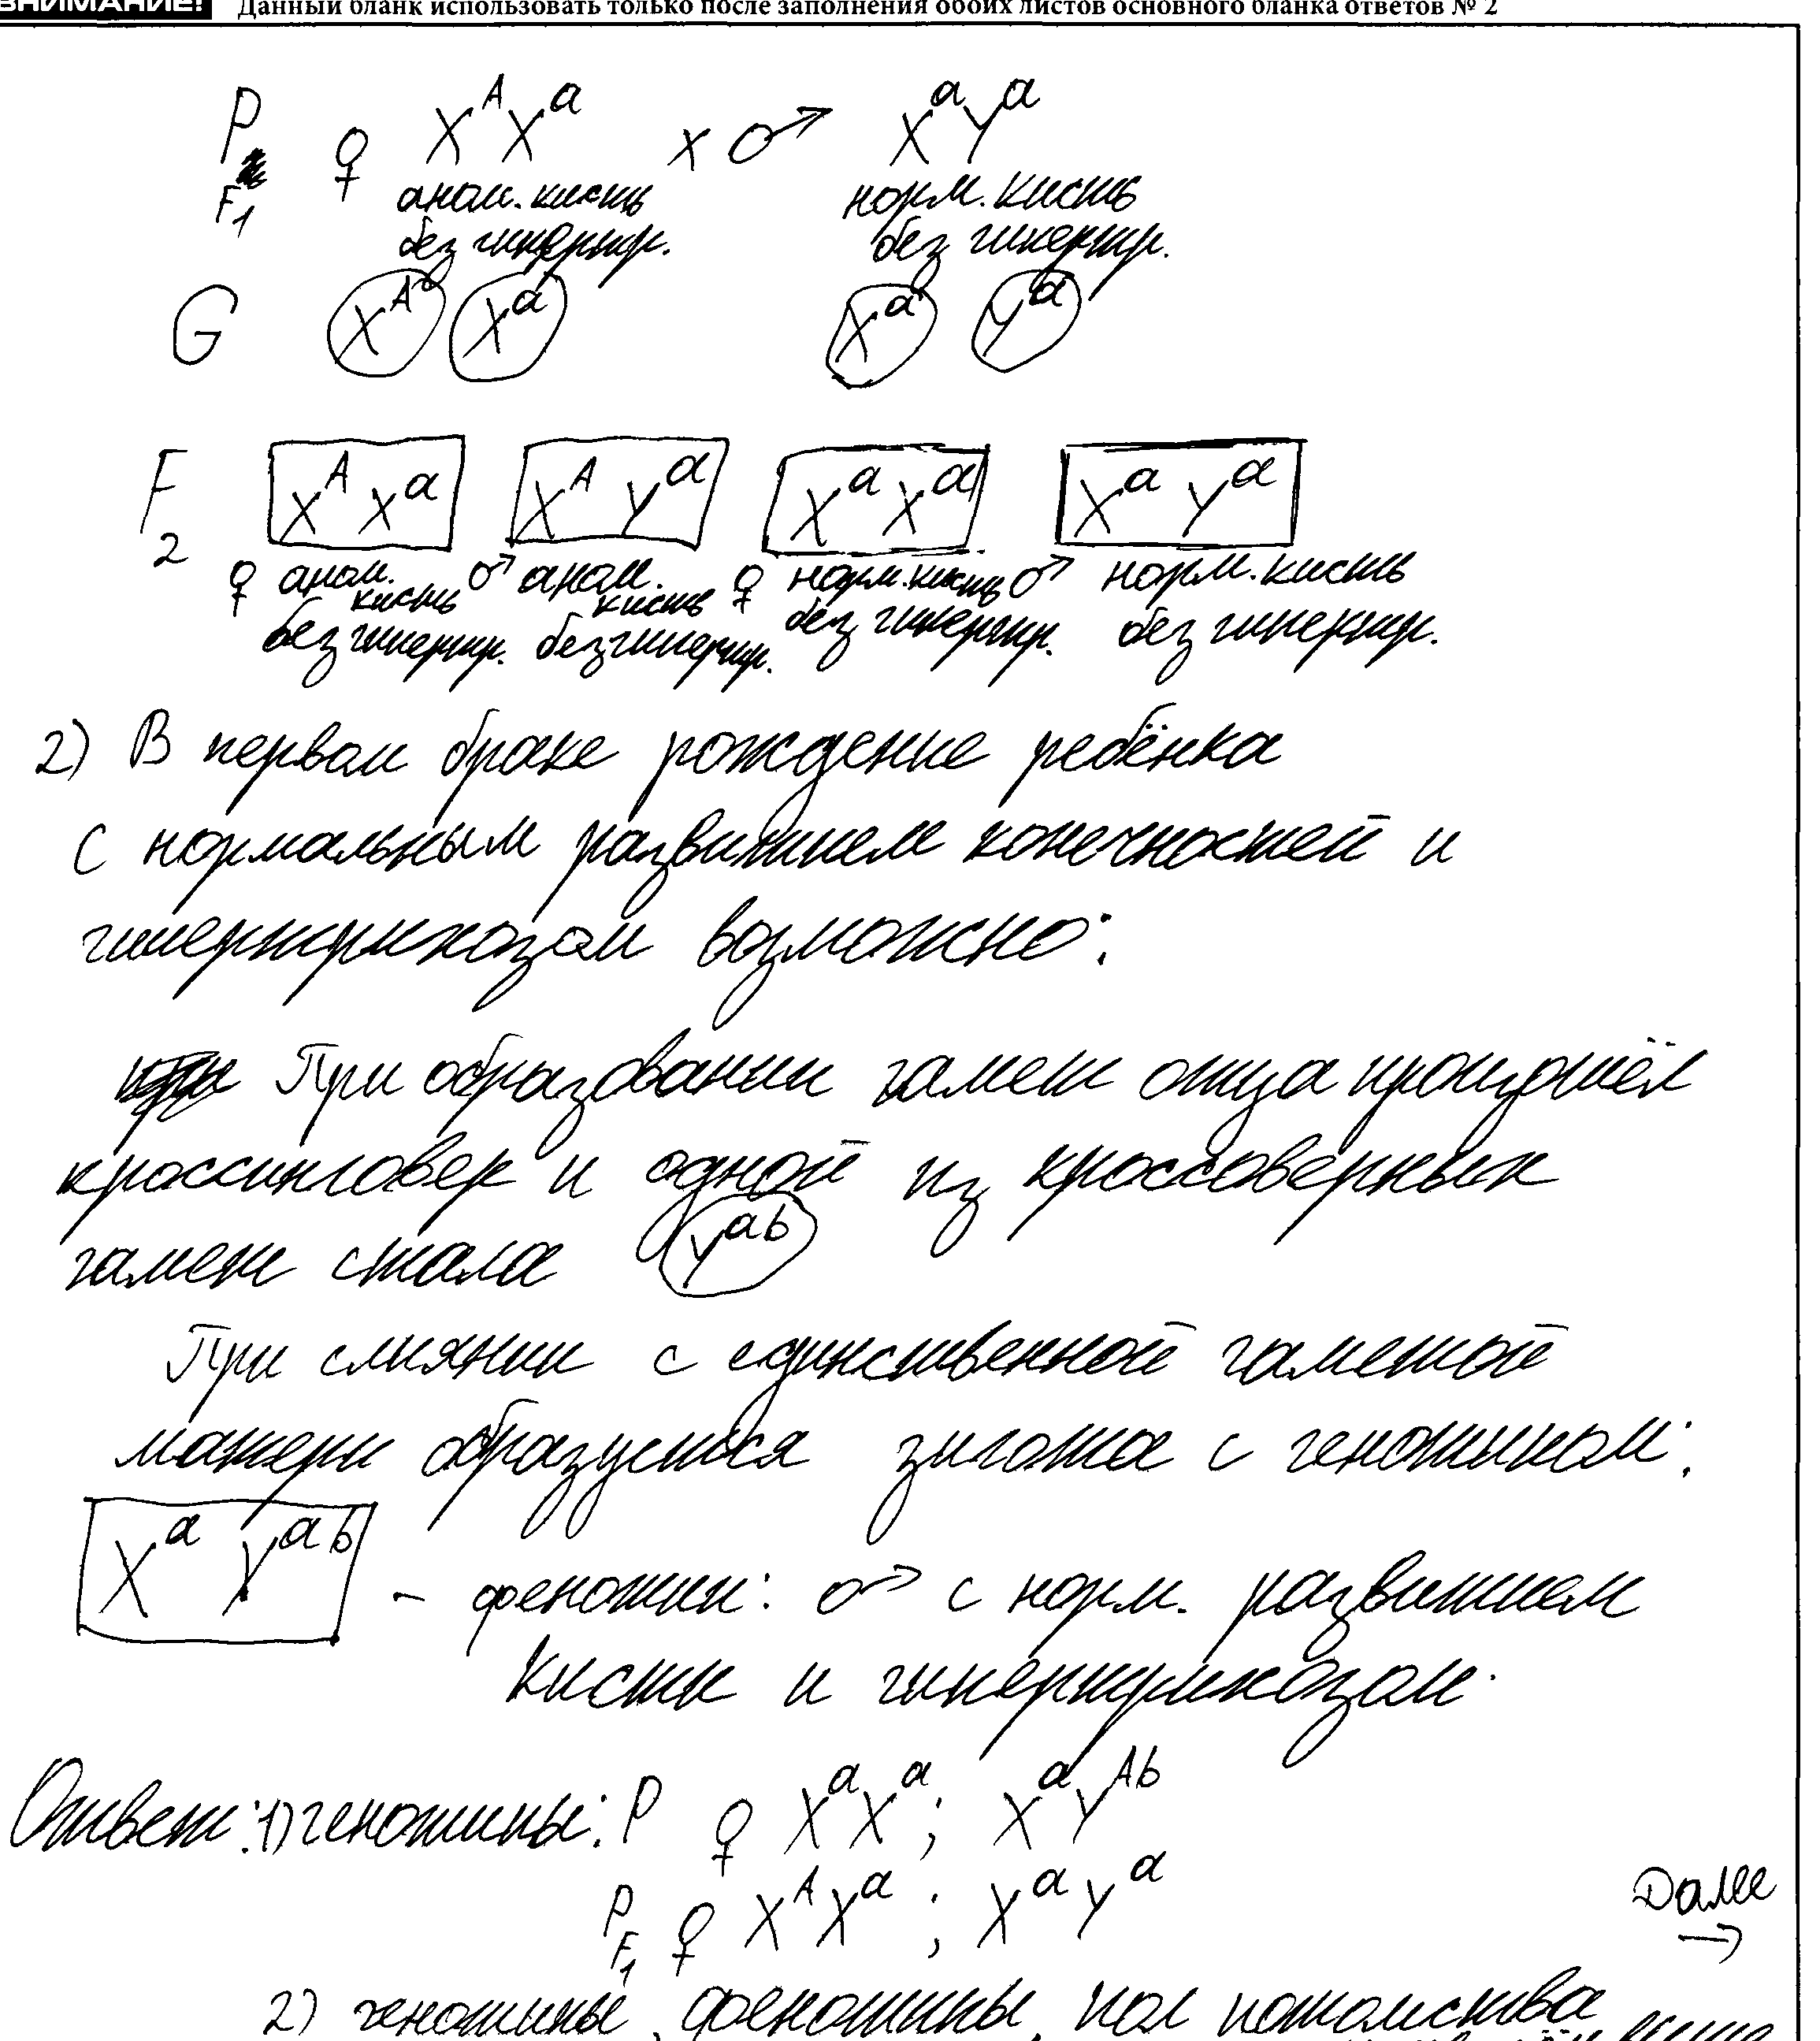 ВНИМАНИЕ! Данный бланк использовать только после заполнения обоих листов основного бланка ответов № 2
P ♀ X^A X^a x ♂ X^a Y^a
F1 аном. кисть норм. кисть
без гипертр. без гипертр.
G X^A X^a X^a Y^a
F2 X^A X^a X^A Y^a X^a X^a X^a Y^a
♀ аном. кисть ♂ аном. кисть ♀ норм. кисть ♂ норм. кисть
без гипертр. без гипертр. без гипертр. без гипертр.
2) В первом браке рождение ребёнка
с нормальным развитием конечностей и
гипертрихозом возможно:
При образовании гамет отца произошёл
кроссинговер и одной из кроссоверных
гамет стала Y^ab
При слиянии с единственной гаметой
матери образуется зигота с генотипом:
X^a Y^ab – фенотип: ♂ с норм. развитием
кисти и гипертрихозом.
Ответ: 1) генотипы: P ♀ X^a X^a; X^a Y^Ab
P F1 ♀ X^A X^a; X^a Y^a
Далее
→
2) генотипы, фенотипы, пол потомства